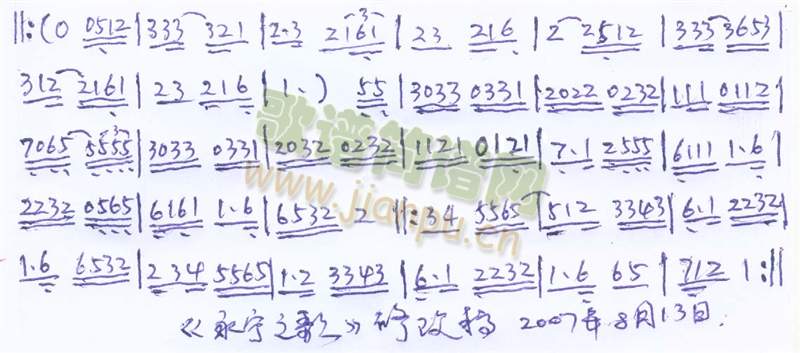 ||:(0 0512|333 321|2·3 2161|23 216|2 2512|333 3653|
312 2161|23 216|1·) 55|3033 0331|2022 0232|111 0112|
7065 5555|3033 0331|2032 0232|1121 0121|7·1 2555|6111 1·6|
2232 0565|6161 1·6|6532 2||:34 5565|512 3343|6·1 2232|
1·6 6532|234 5565|1·2 3343|6·1 2232|1·6 65|712 1:||
《永宁之歌》修改稿 2007年8月13日.
歌谱简谱网
www.jianpu.cn